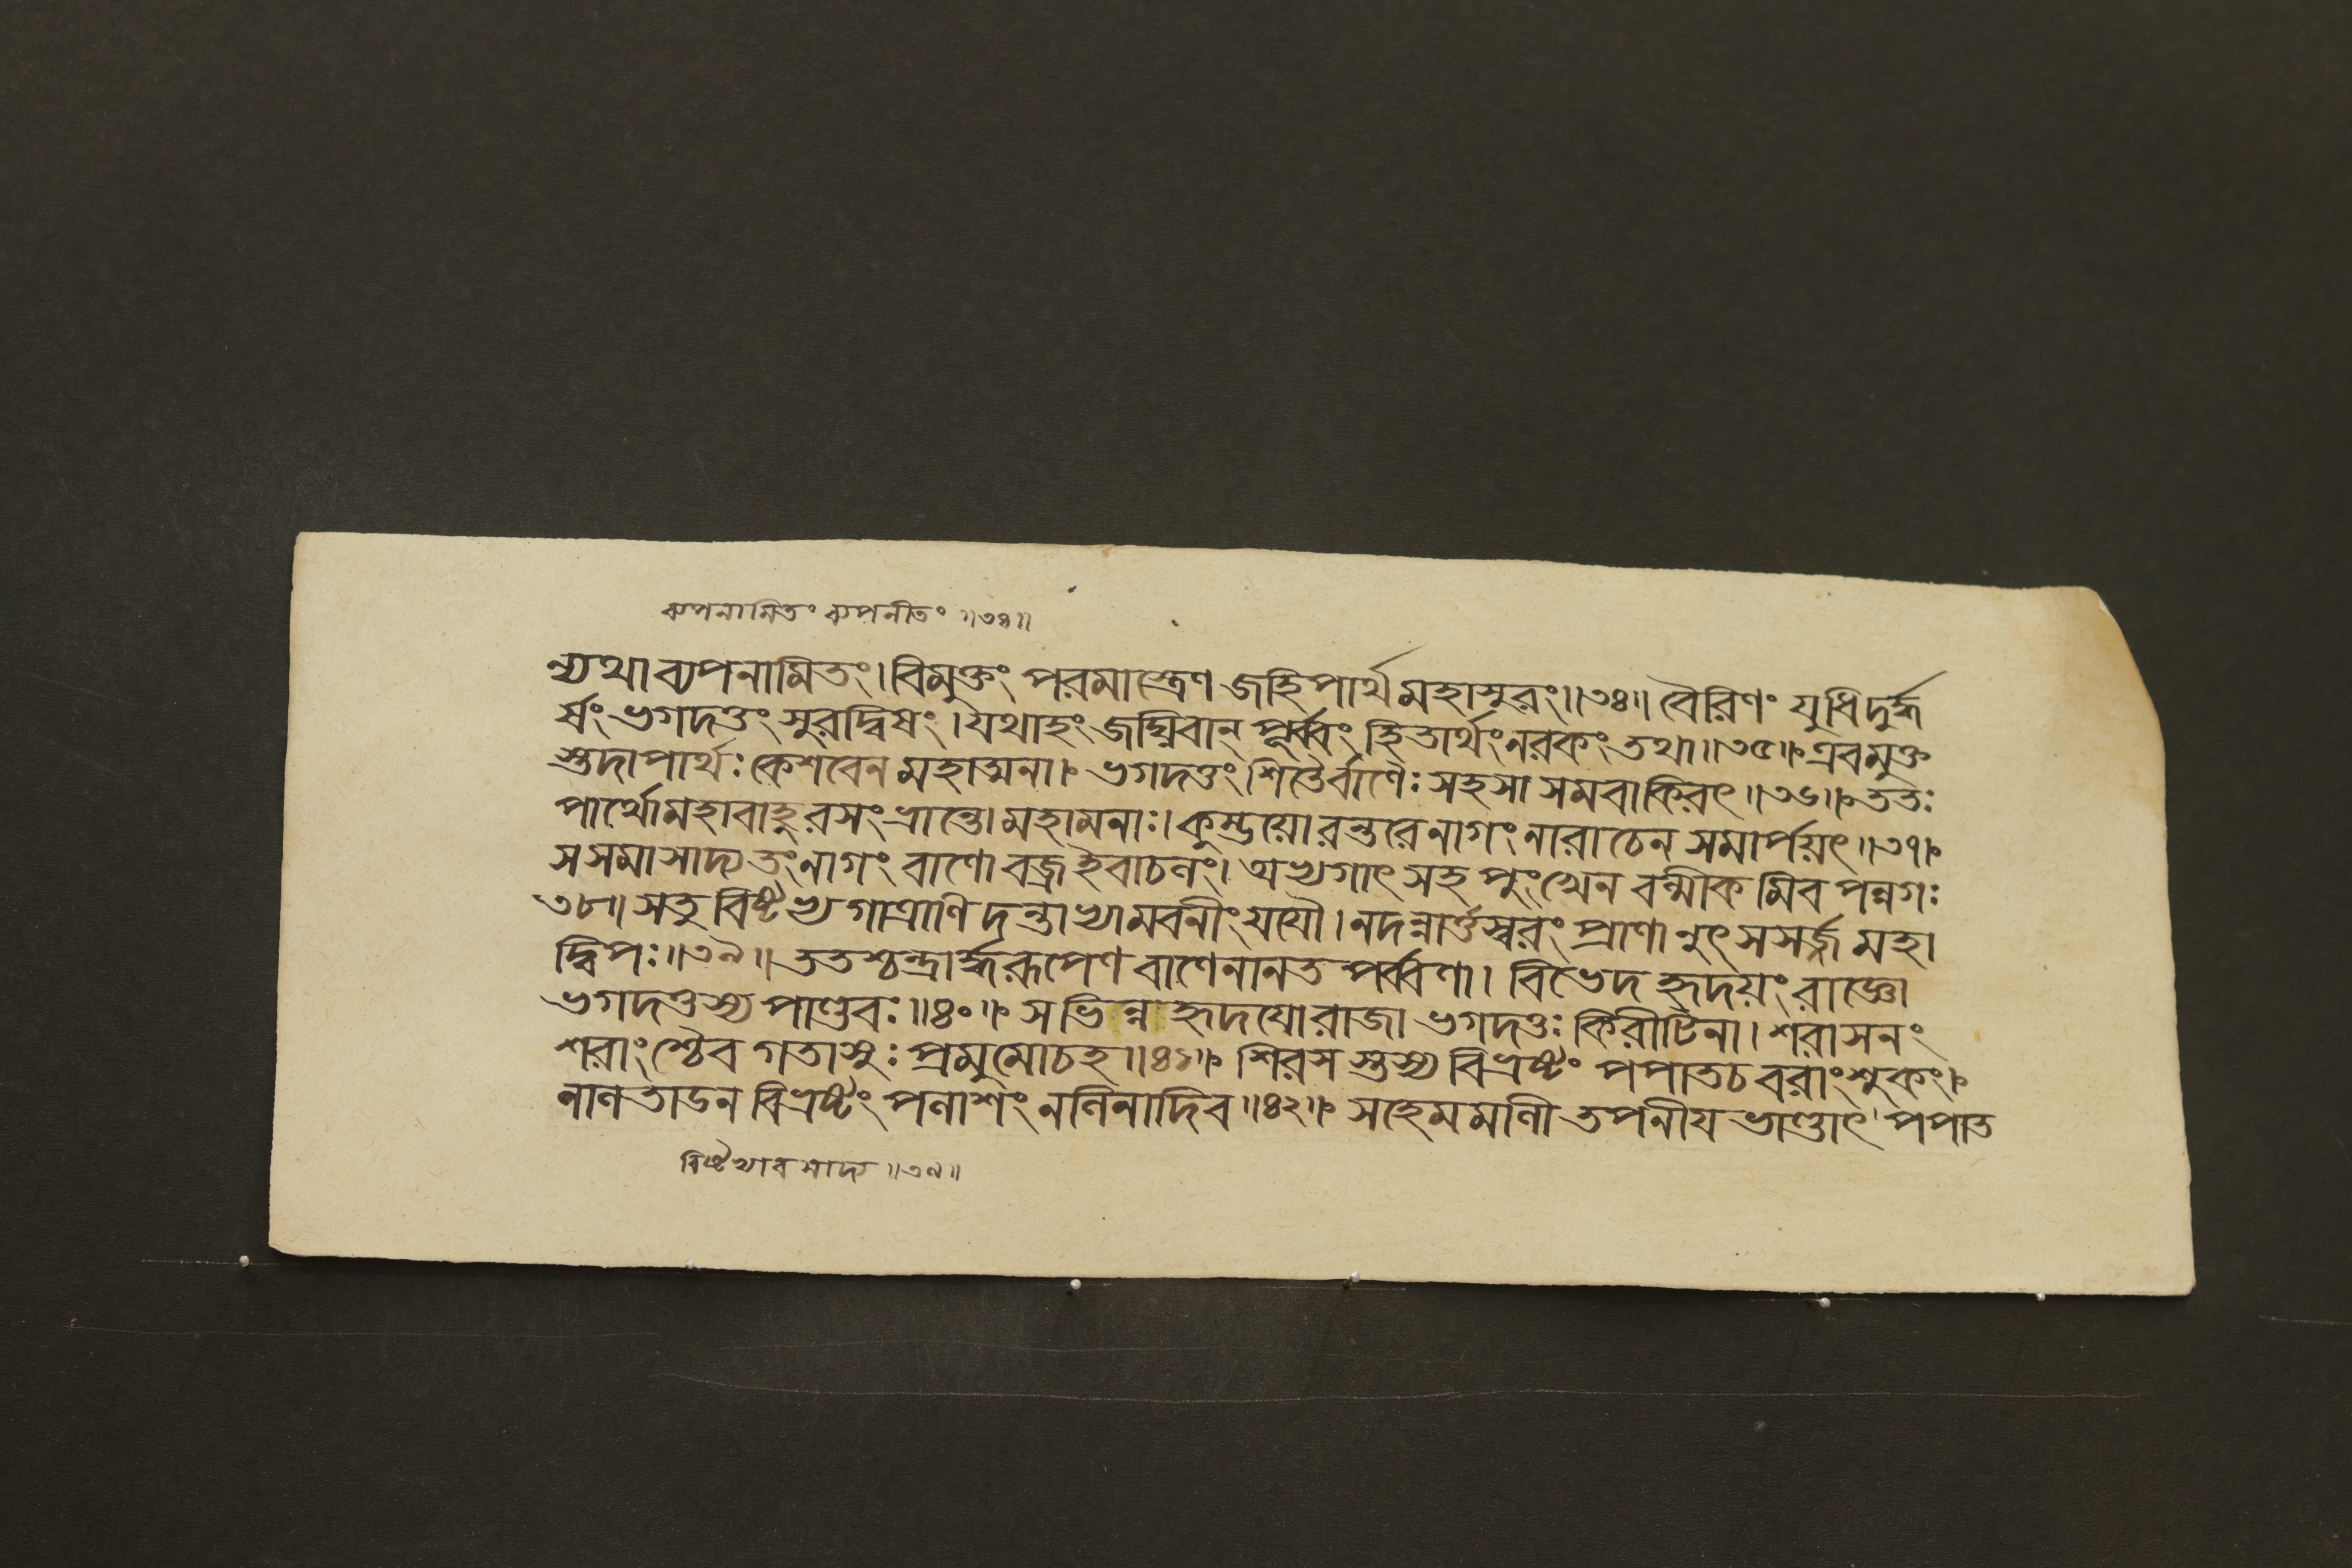 ব্যপনামিতং ব্যপনীতং ॥৩৪॥
ন্যথাব্যপনামিতং। বিমুক্তং পরমাস্ত্রেণ জহিপার্থমহাসুরং॥৩৪॥ বৈরিণং যুধিদুর্দ্ধ
র্ষং ভগদত্তং সুরদ্বিষং। যথাহং জঘ্নিবান্ পূর্ব্বং হিতার্থং নরকং তথা॥৩৫॥ এবমুক্ত
স্তদাপার্থঃ কেশবেন মহাত্মনা। ভগদত্তং শিতৈর্বাণৈঃ সহসা সমবাকিরৎ॥৩৬॥ ততঃ
পার্থোমহাবাহুরসংভ্রান্তো মহামনাঃ। কুম্ভয়োরন্তরেনাগং নারাচেন সমার্পয়ৎ॥৩৭॥
সসমাসাদ্য তংনাগং বাণো বজ্রইবাচলং। অভ্যগাৎ সহ পুংখেন বল্মীকমিব পন্নগঃ
৩৮॥ সতু বিষ্টভ্য গাত্রাণি দন্তাভ্যামবনীং যযৌ। নদন্নার্ত্তস্বরং প্রাণানুৎসসর্জ্জ মহা
দ্বিপঃ॥৩৯॥ ততশ্চন্দ্রার্দ্ধরূপেণ বাণেনানতপর্ব্বণা। বিভেদ হৃদয়ং রাজ্ঞো
ভগদত্তস্য পাণ্ডবঃ॥৪০॥ সভিন্নহৃদযোরাজা ভগদত্তঃ কিরীটিনা। শরাসনং
শরাংশ্চৈব গতাসুঃ প্রমুমোচহ॥৪১॥ শিরসস্তস্য বিভ্রষ্টং পপাতচ বরাংশুকং।
নালতাডন বিভ্রষ্টং পলাশং নলিনাদিব॥৪২॥ সহেমমালী তপনীয ভাণ্ডাৎ পপাত
বিষ্টভ্যাবসাদ্য ॥৩৯॥